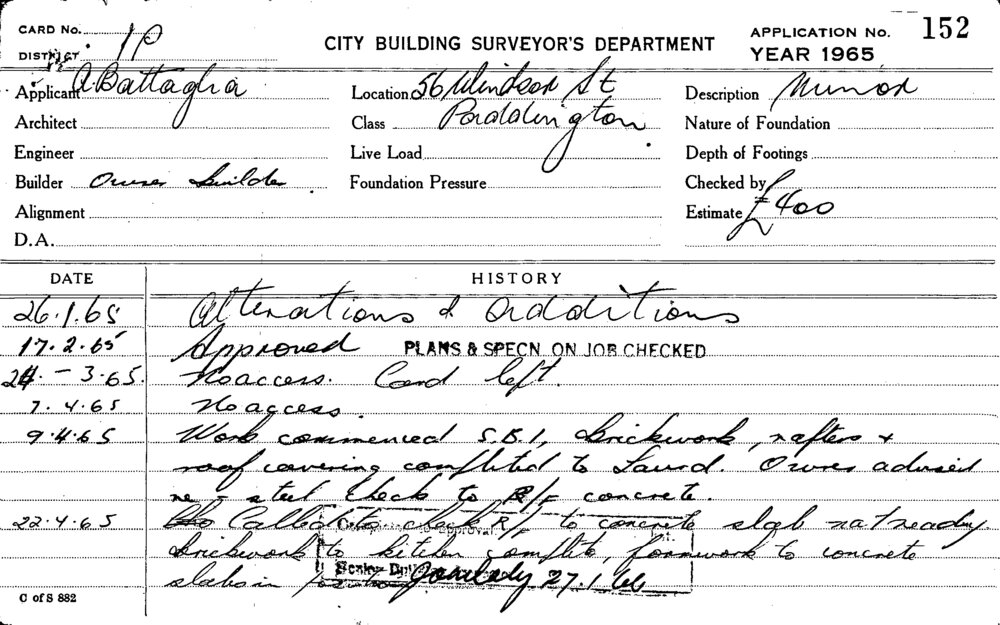 CARD No. 1P
CITY BUILDING SURVEYOR'S DEPARTMENT
APPLICATION No. 152
DISTRICT
YEAR 1965
Applicant A Battaglia Location 56 Windsor St Description Minor
Architect Class Paddington Nature of Foundation
Engineer Live Load Depth of Footings
Builder Owner builder Foundation Pressure Checked by
Alignment Estimate £400
D.A.
DATE HISTORY
26.1.65 Alterations & additions
17.2.65 Approved PLANS & SPECN ON JOB CHECKED
24. - 3.65. No access. Card left.
7.4.65 No access.
9.4.65 Work commenced S.B.1, brickwork, rafters &
roof covering completed to Laund. Owner advised
re - steel check to R/F concrete.
22.4.65 Called to check R/F to concrete slab not ready
brickwork to kitchen complete, formwork to concrete
slabs in 27.1.66
C of S 882